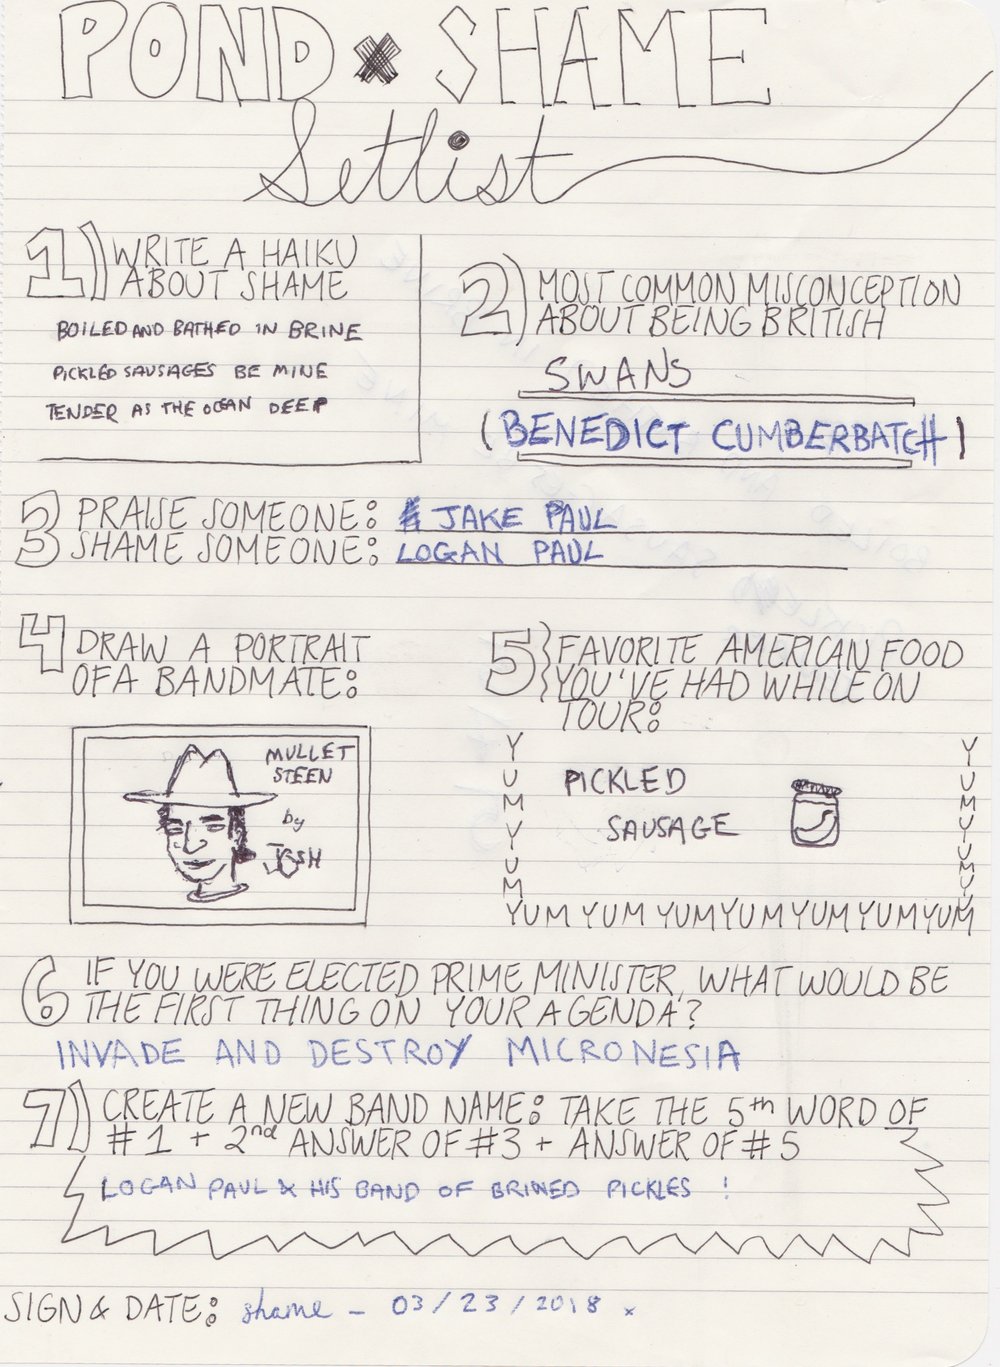 POND x SHAME
Setlist
1) WRITE A HAIKU
ABOUT SHAME
BOILED AND BATHED IN BRINE
PICKLED SAUSAGES BE MINE
TENDER AS THE OCEAN DEEP
2) MOST COMMON MISCONCEPTION
ABOUT BEING BRITISH
SWANS
(BENEDICT CUMBERBATCH)
3) PRAISE SOMEONE: JAKE PAUL
SHAME SOMEONE: LOGAN PAUL
4 DRAW A PORTRAIT
OF A BANDMATE:
MULLET
STEEN
by
JOSH
5} FAVORITE AMERICAN FOOD
YOU'VE HAD WHILE ON
TOUR:
PICKLED
SAUSAGE
YUMYUM
YUMYUMY
YUM YUM YUM YUM YUM YUM YUM
6 IF YOU WERE ELECTED PRIME MINISTER, WHAT WOULD BE
THE FIRST THING ON YOUR AGENDA?
INVADE AND DESTROY MICRONESIA
7) CREATE A NEW BAND NAME: TAKE THE 5th WORD OF
#1 + 2nd ANSWER OF #3 + ANSWER OF #5
LOGAN PAUL & HIS BAND OF BRINED PICKLES !
SIGN & DATE: shame - 03/23/2018 x